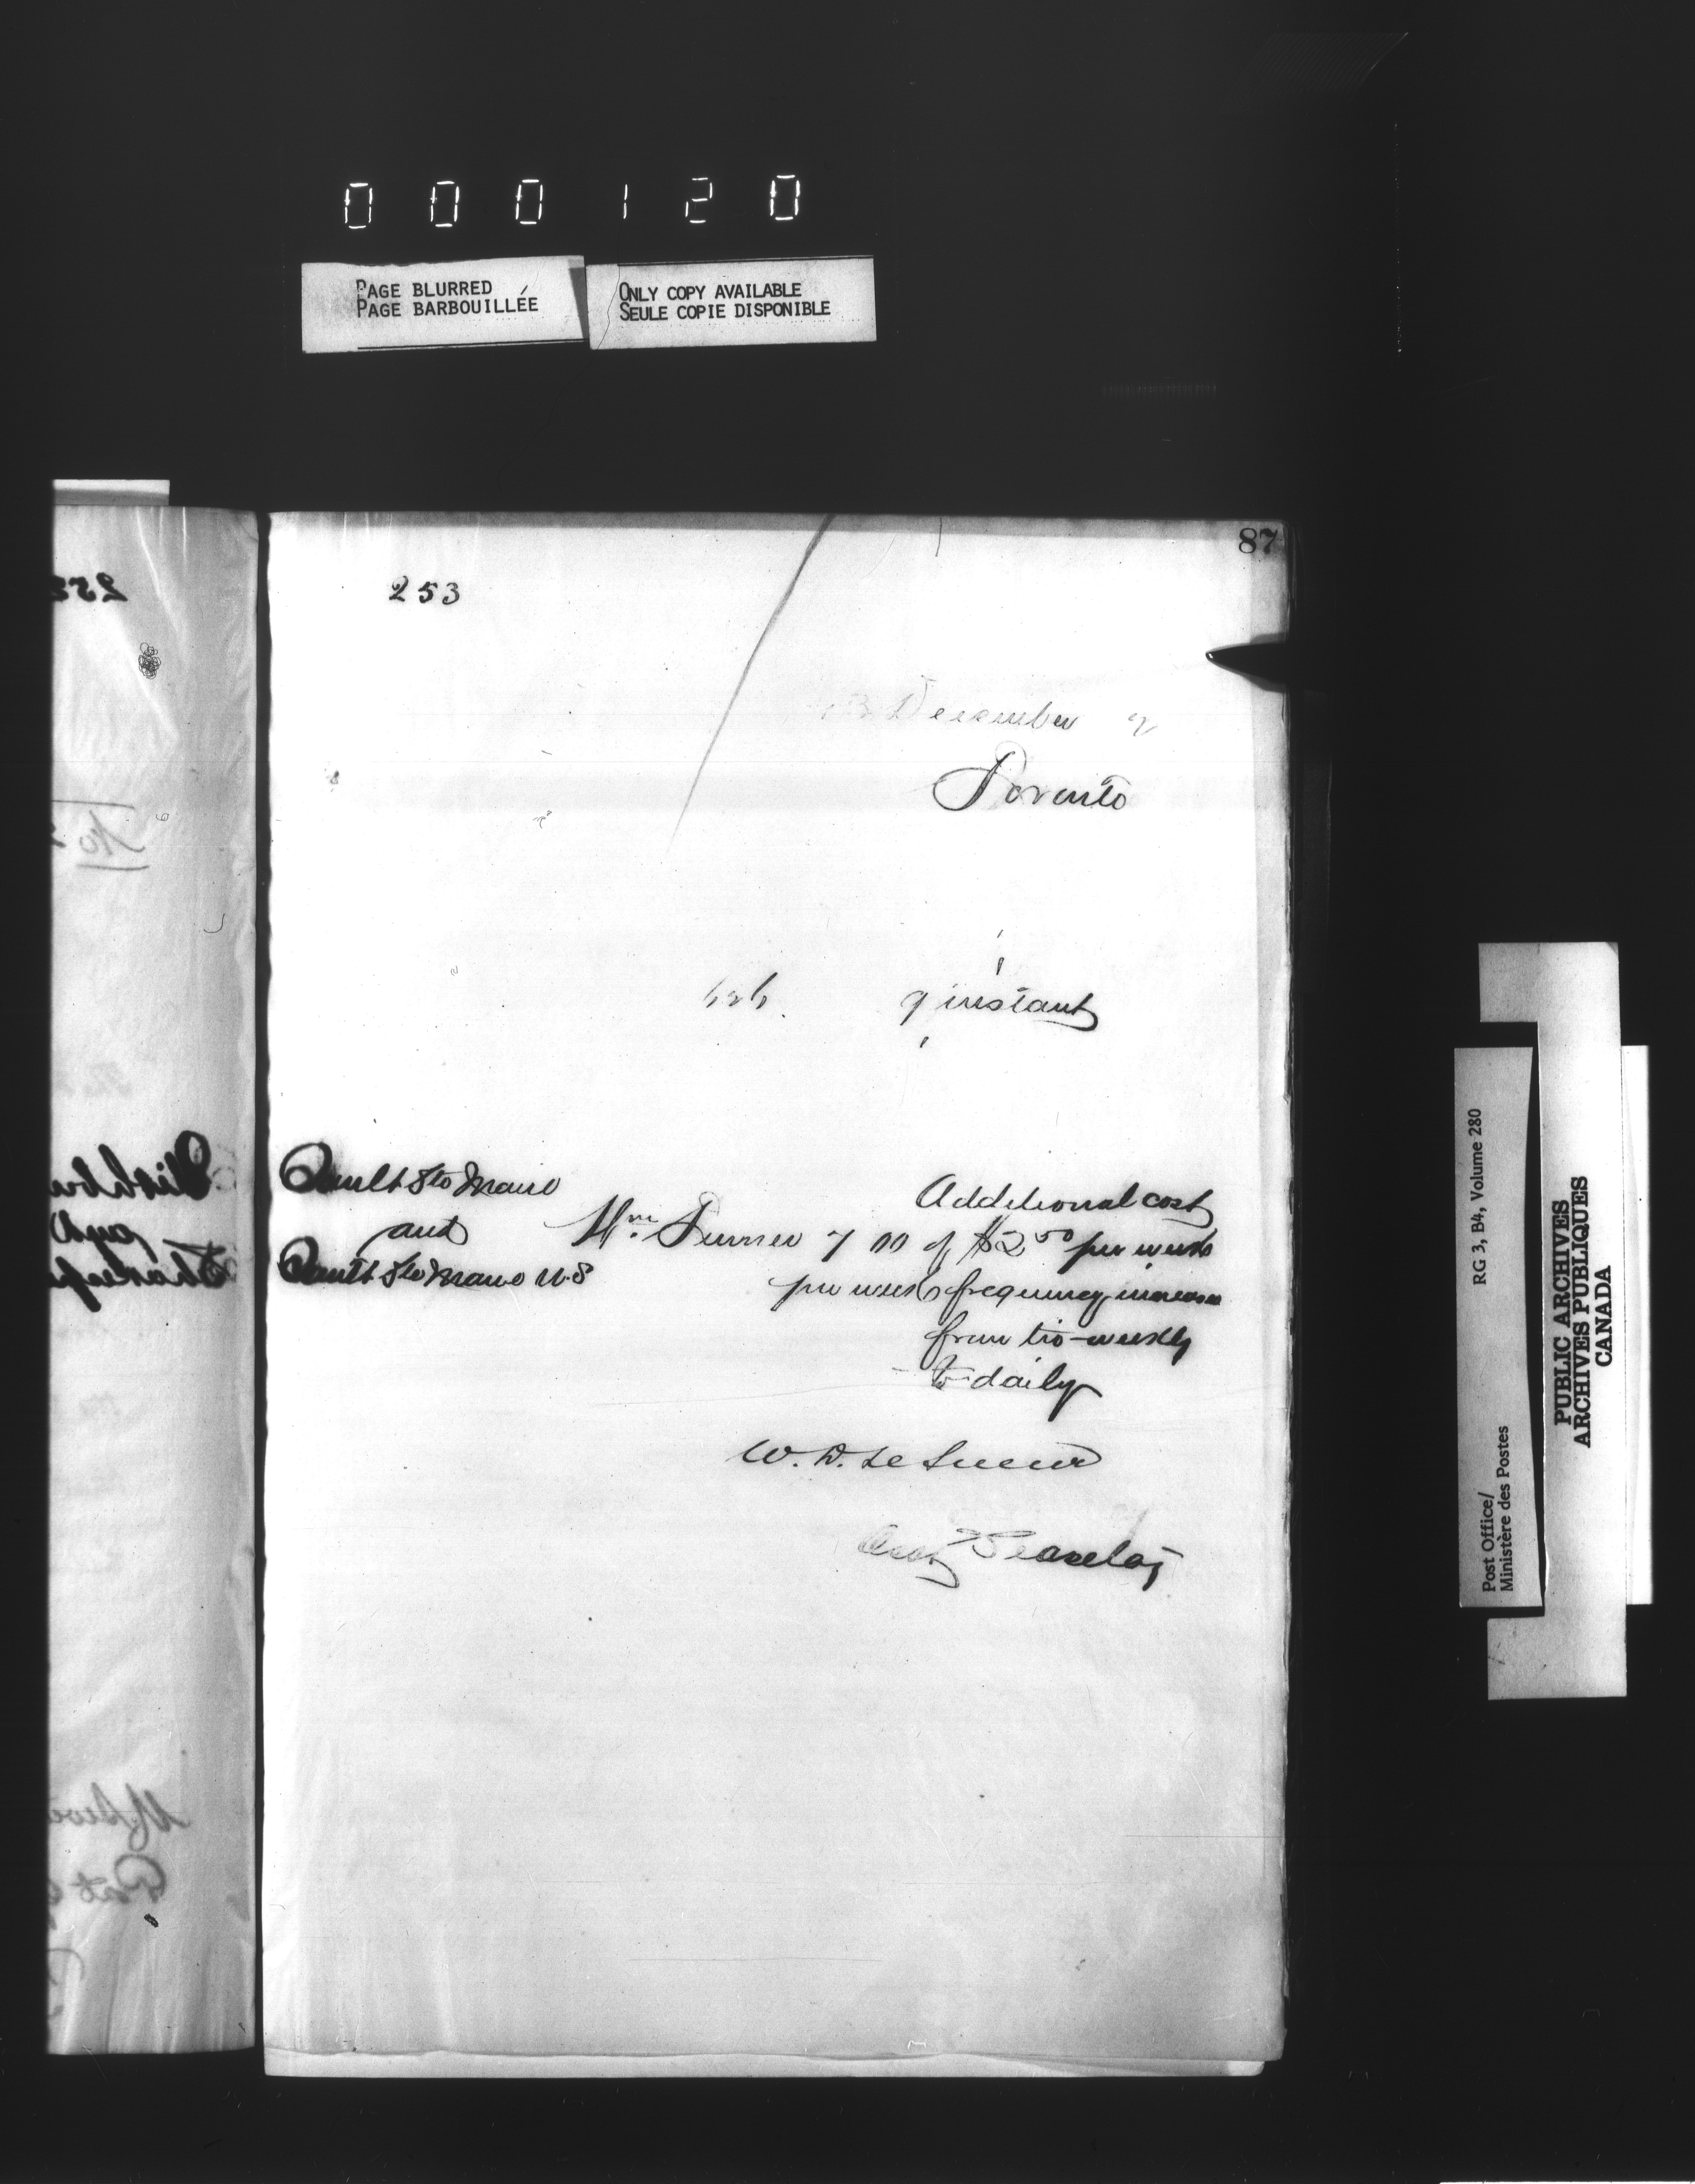 000120
PAGE BLURRED
PAGE BARBOUILLÉE
ONLY COPY AVAILABLE
SEULE COPIE DISPONIBLE
87
253
December
Toronto
instant
Sault Ste Marie
and
Sault Ste Marie U.S
Wm. Turner 7 00
per week
Additional cost
of $2 50 per week
frequency increase
from tri-weekly
to daily
W. D. Le Sueur
Secretary
RG 3, B4, Volume 280
Post Office/
Ministère des Postes
PUBLIC ARCHIVES
ARCHIVES PUBLIQUES
CANADA